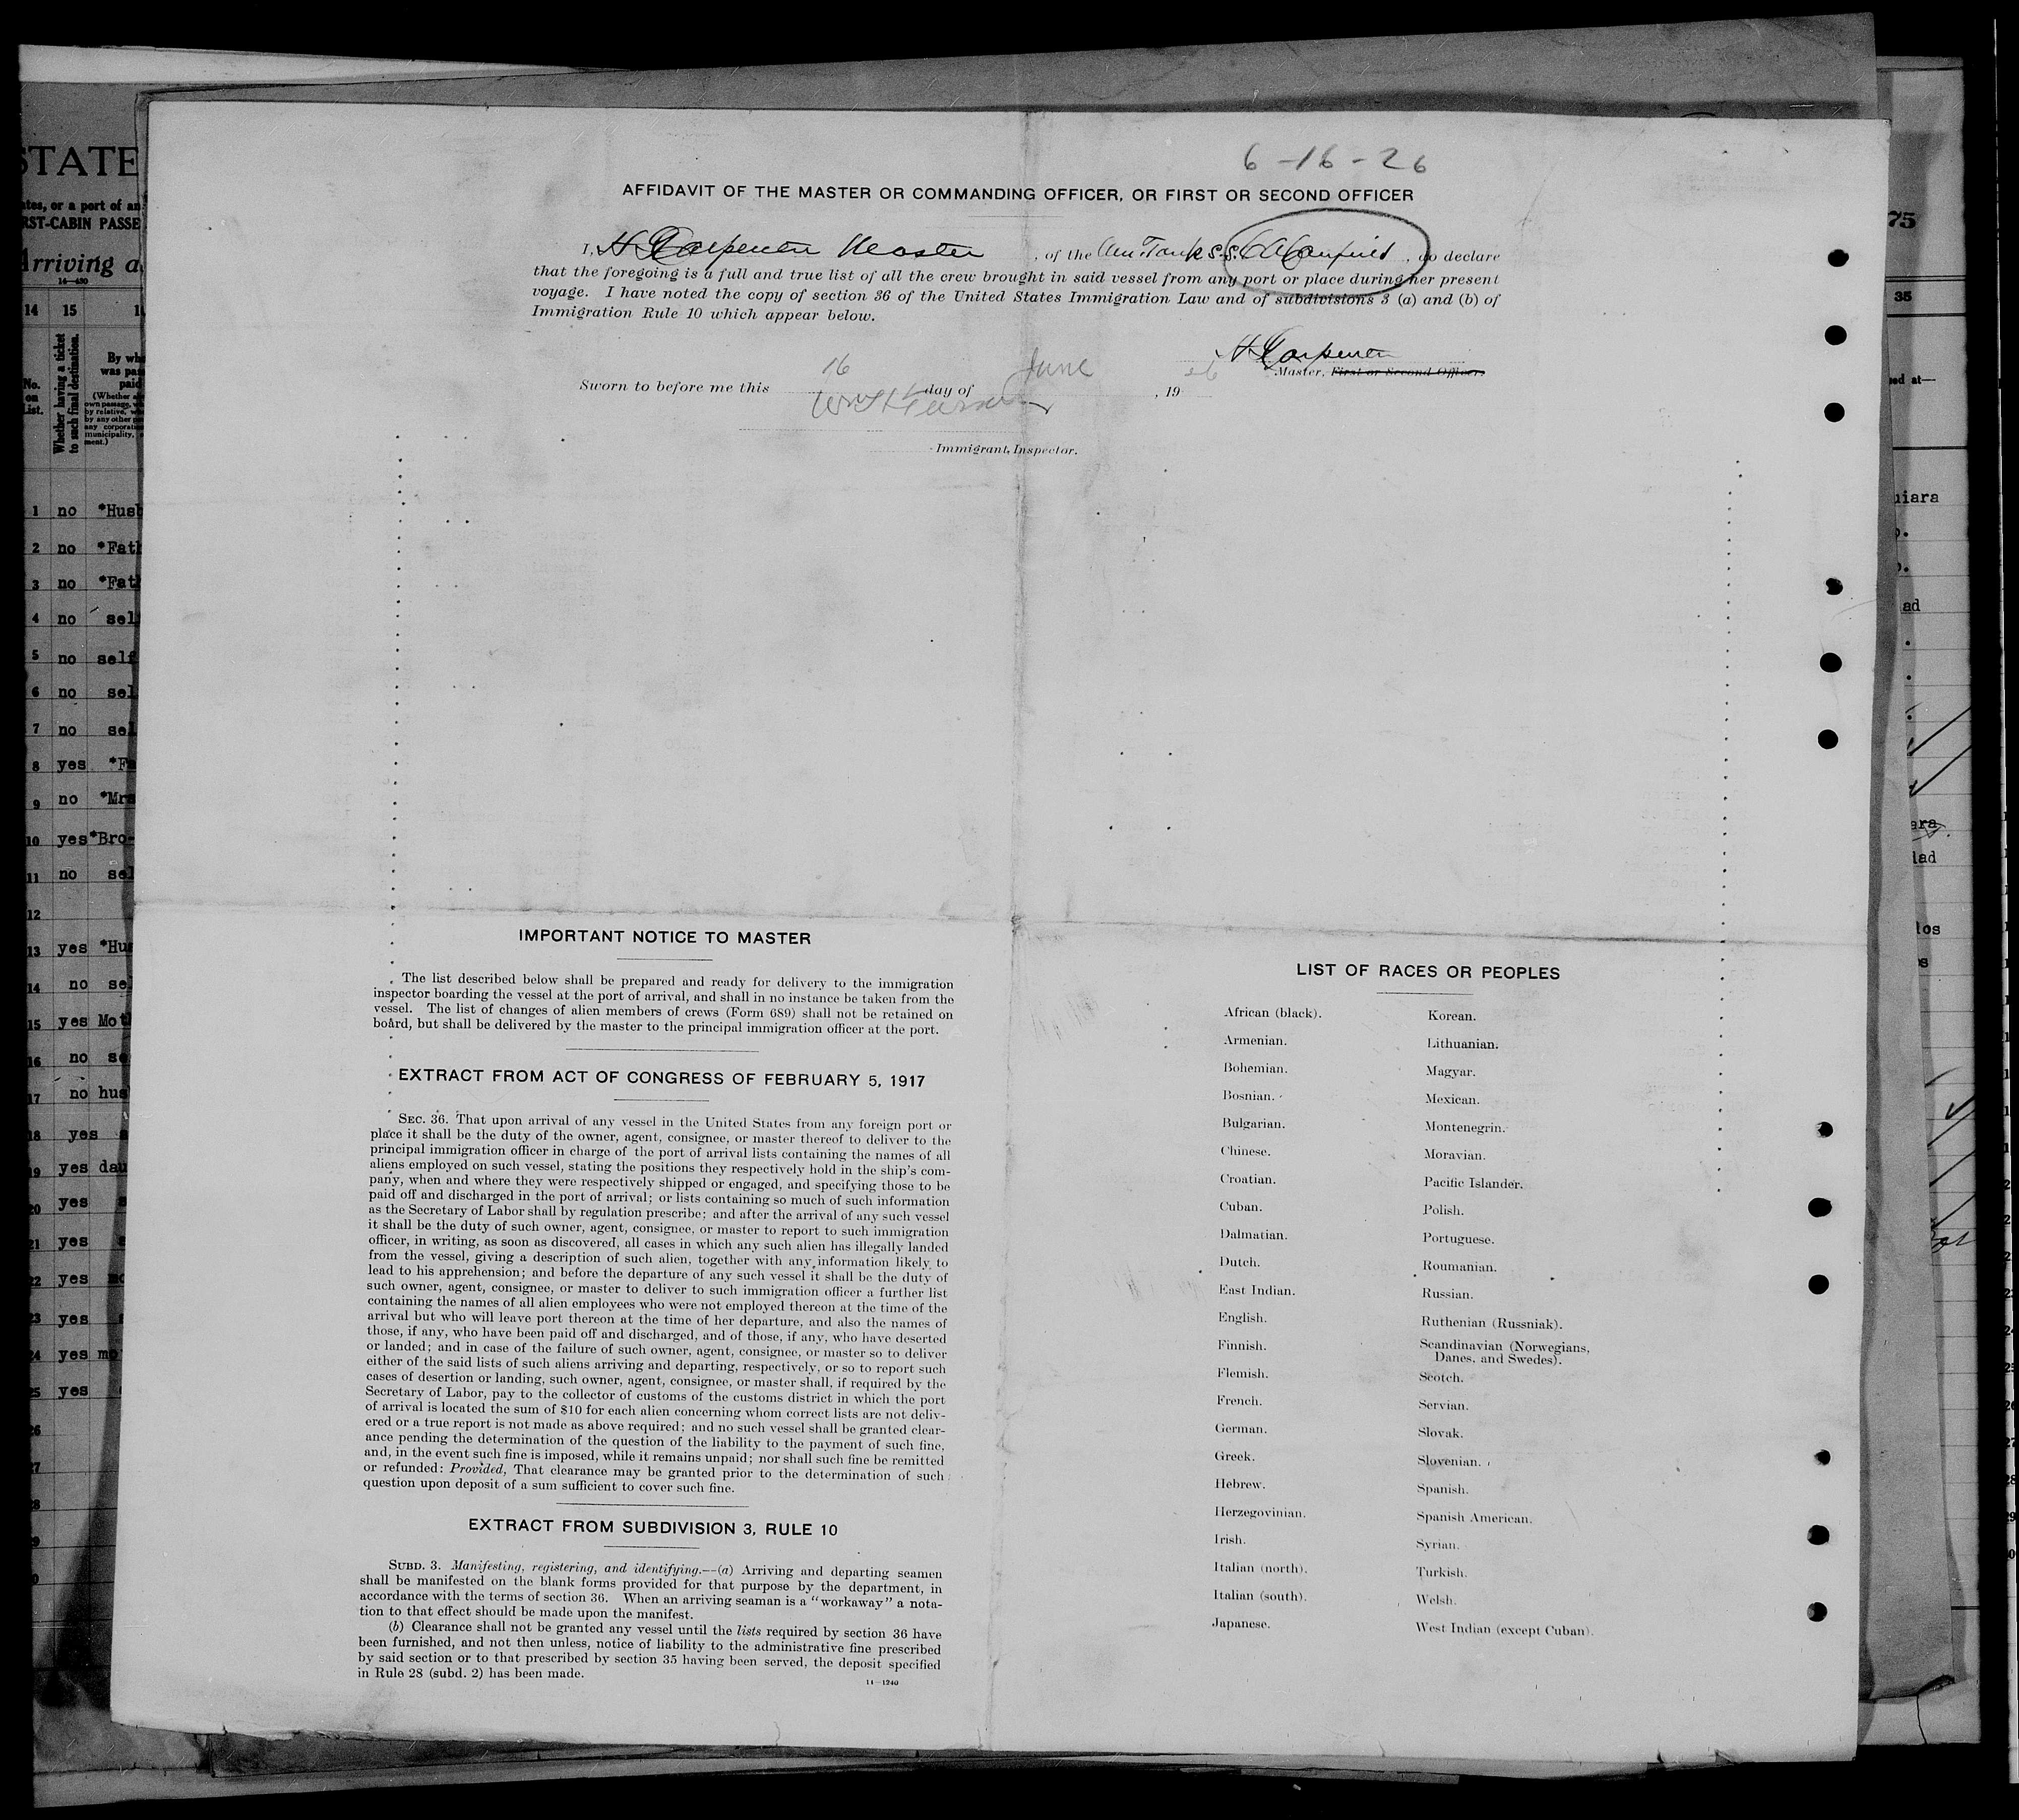 6-16-26
AFFIDAVIT OF THE MASTER OR COMMANDING OFFICER, OR FIRST OR SECOND OFFICER
I, H Carpenter Master, of the Am. Tank S.S. CA Canfield, do declare
that the foregoing is a full and true list of all the crew brought in said vessel from any port or place during her present
voyage. I have noted the copy of section 36 of the United States Immigration Law and of subdivisions 3 (a) and (b) of
Immigration Rule 10 which appear below.
H Carpenter
Master, First or Second Officer.
Sworn to before me this 16 day of June, 1926
Immigrant Inspector.
IMPORTANT NOTICE TO MASTER
The list described below shall be prepared and ready for delivery to the immigration
inspector boarding the vessel at the port of arrival, and shall in no instance be taken from the
vessel. The list of changes of alien members of crews (Form 689) shall not be retained on
board, but shall be delivered by the master to the principal immigration officer at the port.
EXTRACT FROM ACT OF CONGRESS OF FEBRUARY 5, 1917
SEC. 36. That upon arrival of any vessel in the United States from any foreign port or
place it shall be the duty of the owner, agent, consignee, or master thereof to deliver to the
principal immigration officer in charge of the port of arrival lists containing the names of all
aliens employed on such vessel, stating the positions they respectively hold in the ship's com-
pany, when and where they were respectively shipped or engaged, and specifying those to be
paid off and discharged in the port of arrival; or lists containing so much of such information
as the Secretary of Labor shall by regulation prescribe; and after the arrival of any such vessel
it shall be the duty of such owner, agent, consignee, or master to report to such immigration
officer, in writing, as soon as discovered, all cases in which any such alien has illegally landed
from the vessel, giving a description of such alien, together with any information likely to
lead to his apprehension; and before the departure of any such vessel it shall be the duty of
such owner, agent, consignee, or master to deliver to such immigration officer a further list
containing the names of all alien employees who were not employed thereon at the time of the
arrival but who will leave port thereon at the time of her departure, and also the names of
those, if any, who have been paid off and discharged, and of those, if any, who have deserted
or landed; and in case of the failure of such owner, agent, consignee, or master so to deliver
either of the said lists of such aliens arriving and departing, respectively, or so to report such
cases of desertion or landing, such owner, agent, consignee, or master shall, if required by the
Secretary of Labor, pay to the collector of customs of the customs district in which the port
of arrival is located the sum of $10 for each alien concerning whom correct lists are not deliv-
ered or a true report is not made as above required; and no such vessel shall be granted clear-
ance pending the determination of the question of the liability to the payment of such fine,
and, in the event such fine is imposed, while it remains unpaid; nor shall such fine be remitted
or refunded: Provided, That clearance may be granted prior to the determination of such
question upon deposit of a sum sufficient to cover such fine.
EXTRACT FROM SUBDIVISION 3, RULE 10
SUBD. 3. Manifesting, registering, and identifying.—(a) Arriving and departing seamen
shall be manifested on the blank forms provided for that purpose by the department, in
accordance with the terms of section 36. When an arriving seaman is a "workaway" a nota-
tion to that effect should be made upon the manifest.
(b) Clearance shall not be granted any vessel until the lists required by section 36 have
been furnished, and not then unless, notice of liability to the administrative fine prescribed
by said section or to that prescribed by section 35 having been served, the deposit specified
in Rule 28 (subd. 2) has been made.
14—1240
LIST OF RACES OR PEOPLES
African (black).
Armenian.
Bohemian.
Bosnian.
Bulgarian.
Chinese.
Croatian.
Cuban.
Dalmatian.
Dutch.
East Indian.
English.
Finnish.
Flemish.
French.
German.
Greek.
Hebrew.
Herzegovinian.
Irish.
Italian (north).
Italian (south).
Japanese.
Korean.
Lithuanian.
Magyar.
Mexican.
Montenegrin.
Moravian.
Pacific Islander.
Polish.
Portuguese.
Roumanian.
Russian.
Ruthenian (Russniak).
Scandinavian (Norwegians,
Danes, and Swedes).
Scotch.
Servian.
Slovak.
Slovenian.
Spanish.
Spanish American.
Syrian.
Turkish.
Welsh.
West Indian (except Cuban).